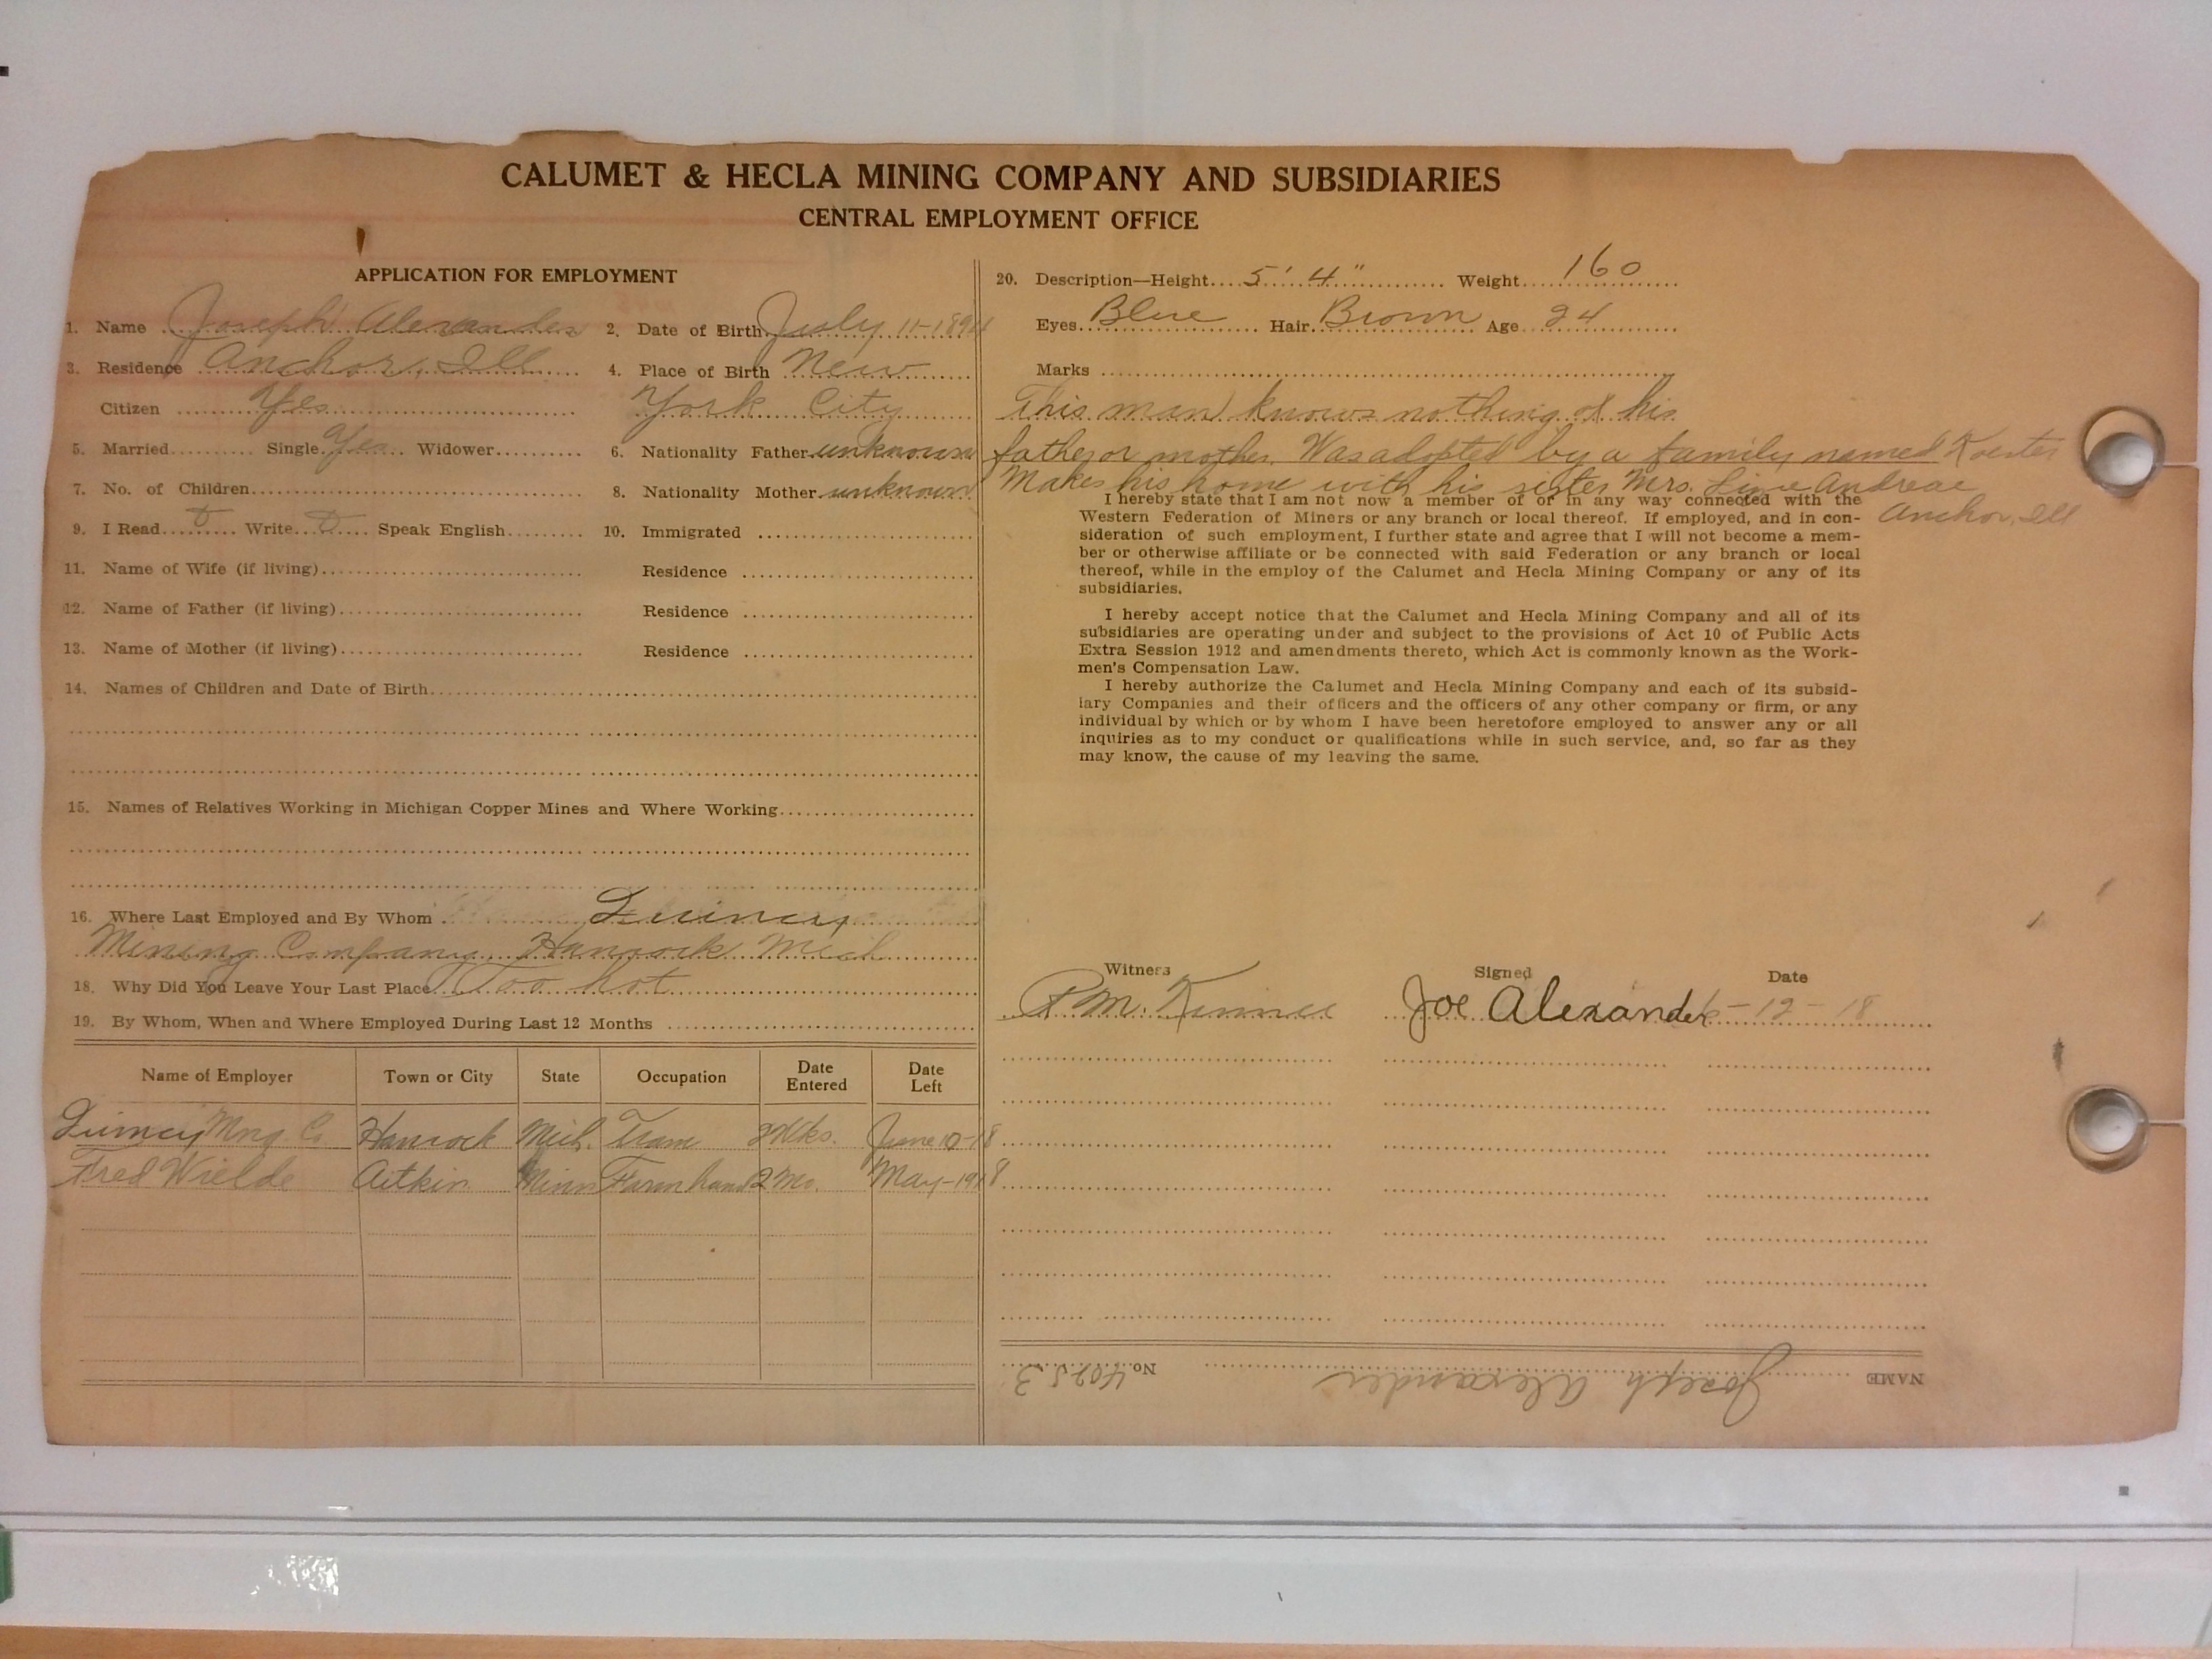 CALUMET & HECLA MINING COMPANY AND SUBSIDIARIES
CENTRAL EMPLOYMENT OFFICE
APPLICATION FOR EMPLOYMENT
1. Name Joseph Alexander 2. Date of Birth July 11-1894
3. Residence Anchor, Ill 4. Place of Birth New
Citizen Yes York City
5. Married Single Yes Widower 6. Nationality Father unknown
7. No. of Children 8. Nationality Mother unknown
9. I Read Write Speak English 10. Immigrated
11. Name of Wife (if living) Residence
12. Name of Father (if living) Residence
13. Name of Mother (if living) Residence
14. Names of Children and Date of Birth
15. Names of Relatives Working in Michigan Copper Mines and Where Working
16. Where Last Employed and By Whom Quincy
Mining Company Hancock Mich
18. Why Did You Leave Your Last Place Too hot
19. By Whom, When and Where Employed During Last 12 Months
Name of Employer Town or City State Occupation Date Entered Date Left
Quincy Mng. Co Hancock Mich. Tram 2 Wks. June 10-18
Fred Wielde Aitkin Minn Farmhand 2 Mo. May-1918
20. Description—Height 5' 4" Weight 160
Eyes Blue Hair Brown Age 24
Marks
This man knows nothing of his
father or mother. Was adopted by a family named Koester
Makes his home with his sister Mrs. Andreae
Anchor, Ill
I hereby state that I am not now a member of or in any way connected with the
Western Federation of Miners or any branch or local thereof. If employed, and in con-
sideration of such employment, I further state and agree that I will not become a mem-
ber or otherwise affiliate or be connected with said Federation or any branch or local
thereof, while in the employ of the Calumet and Hecla Mining Company or any of its
subsidiaries.
I hereby accept notice that the Calumet and Hecla Mining Company and all of its
subsidiaries are operating under and subject to the provisions of Act 10 of Public Acts
Extra Session 1912 and amendments thereto, which Act is commonly known as the Work-
men's Compensation Law.
I hereby authorize the Calumet and Hecla Mining Company and each of its subsid-
iary Companies and their officers and the officers of any other company or firm, or any
individual by which or by whom I have been heretofore employed to answer any or all
inquiries as to my conduct or qualifications while in such service, and, so far as they
may know, the cause of my leaving the same.
Witness Signed Date
P.M. Joe Alexander 6-12-18
NAME Joseph Alexander No. 40253